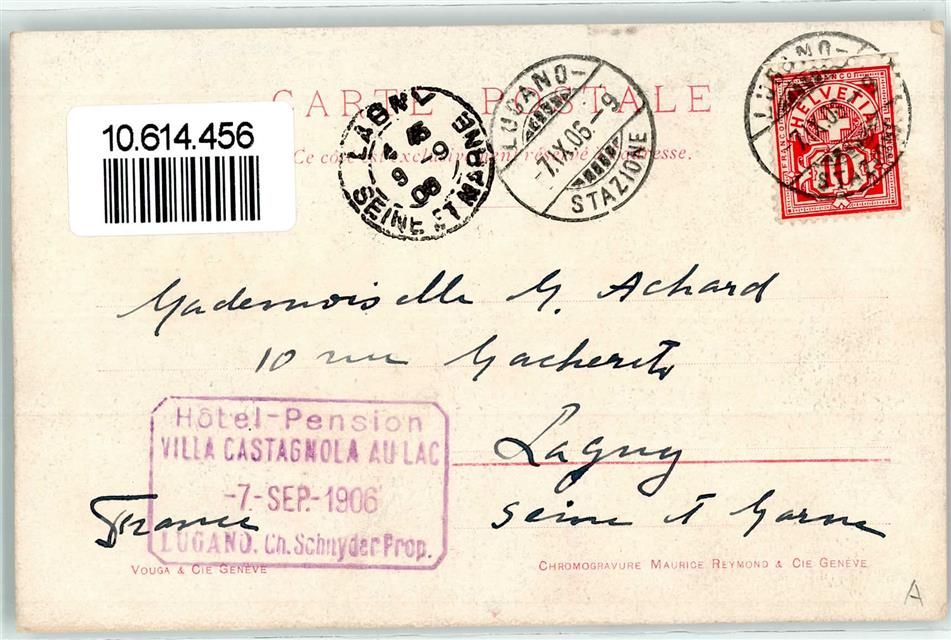 CARTE POSTALE
10.614.456
LAGNY
9 06
SEINE ET MARNE
LUGANO-
-7.IX.06.-9
STAZIONE
LUGANO-
HELVETIA
10
Ce côté est exclusivement réservé à l'adresse.
Mademoiselle M. Achard
10 rue
Lagny
Seine et Marne
France
Hôtel-Pension
VILLA CASTAGNOLA AU LAC
-7-SEP-1906
LUGANO. Ch. Schnyder Prop.
VOUGA & CIE GENÈVE
CHROMOGRAVURE MAURICE REYMOND & CIE GENÈVE
A